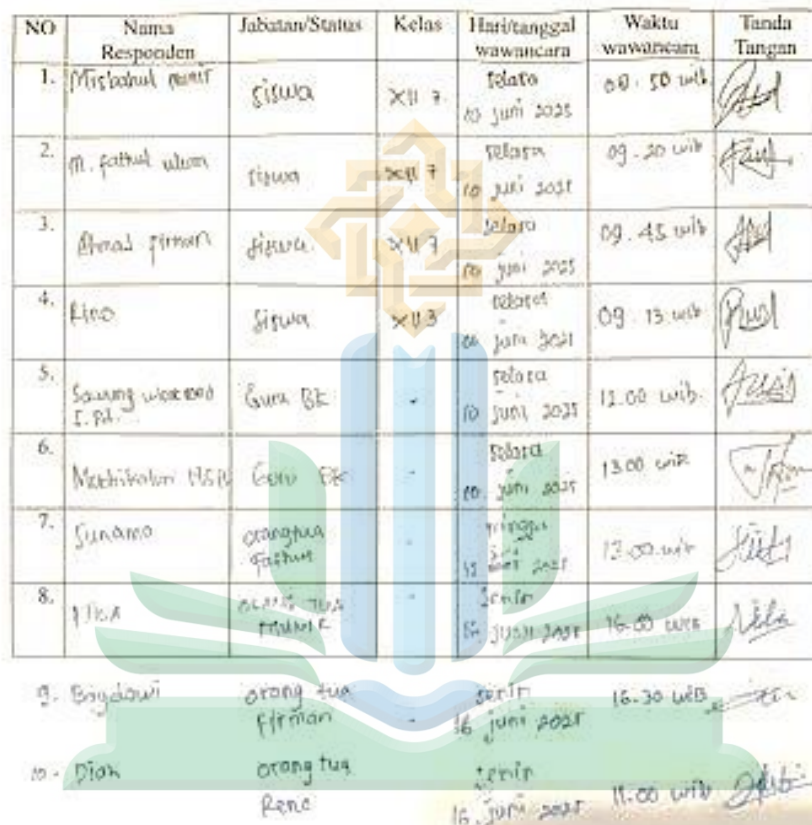 NO Nama Responden Jabatan/Status Kelas Hari/tanggal wawancara Waktu wawancara Tanda Tangan
1. Misbahul munir siswa XII 7 selasa 10 juni 2025 08.50 wib
2. M. fathul ulum siswa XII 7 selasa 10 juni 2025 09.20 wib
3. Ahmad firman siswa XII 7 selasa 10 juni 2025 09.45 wib
4. siswa XII 3 selasa juni 09.13 wib
5. S.Pd. Guru BK - selasa 10 juni 2025 12.00 wib
6. Guru BK - selasa 10 juni 2025 13.00 wib
7. Sunarno orang tua Fathul - 2025 13.00 wib
8. orang tua munir - senin juni 2025 16.00 wib
9. orang tua Firman - senin 16 juni 2025 16.30 WIB
10. Diah orang tua senin 16 juni 2025 11.00 wib